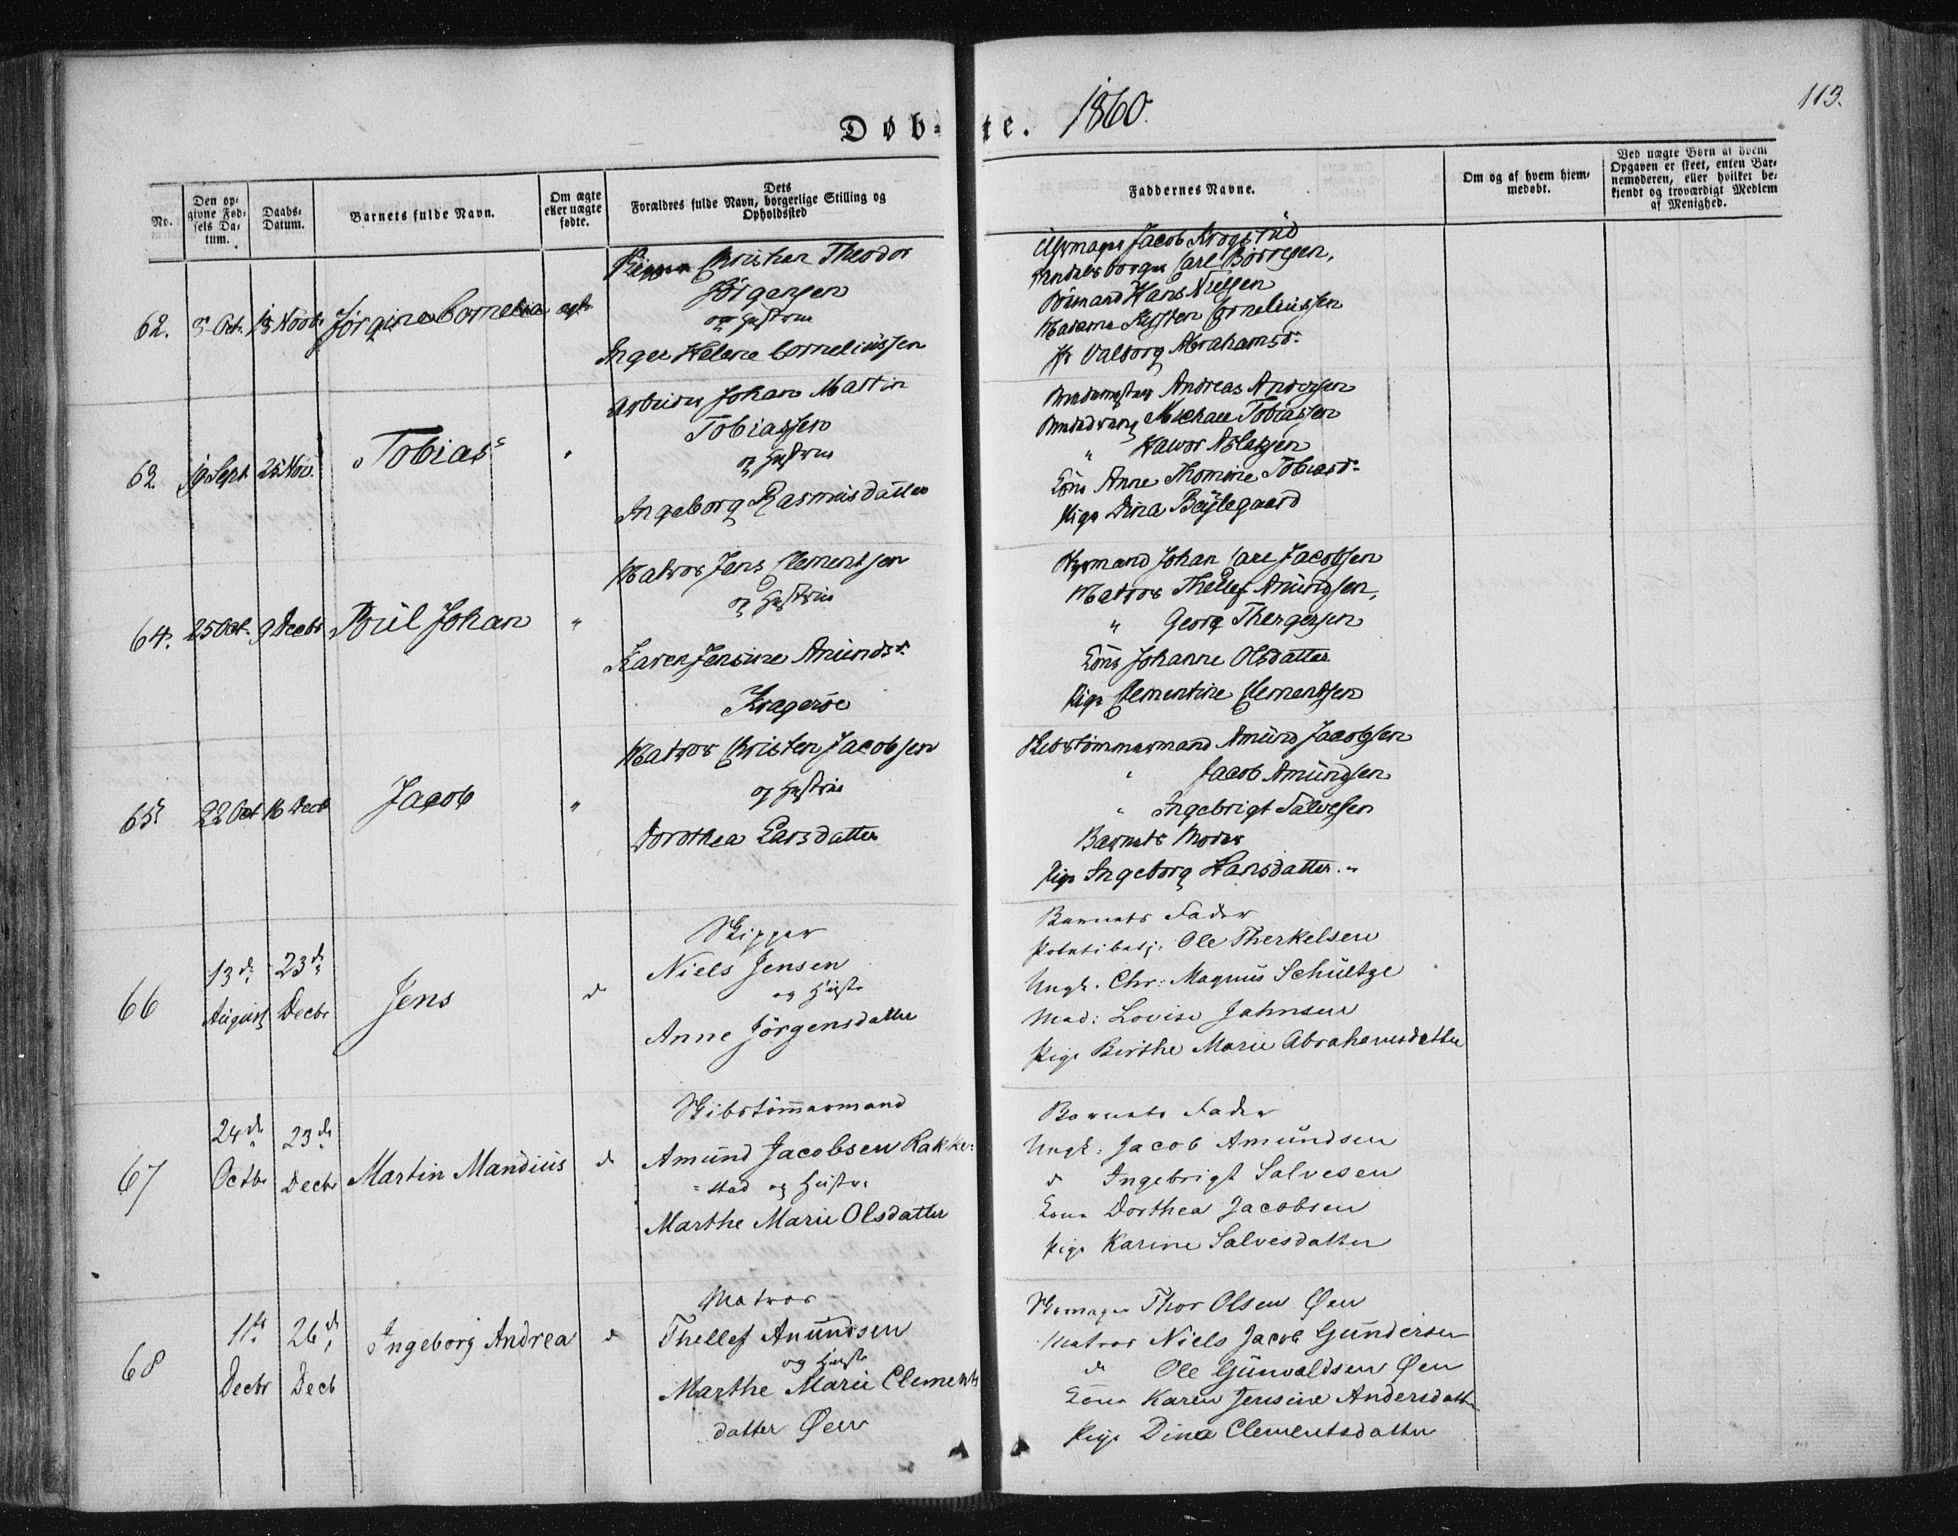 Døbte. 1860.
113.
No.
Den op-
givne Fød-
sels Da-
tum.
Daabs-
Datum.
Barnets fulde Navn.
Om ægte
eller uægte
fødte.
Dets
Forældres fulde Navn, borgerlige Stilling og
Opholdssted
Faddernes Navne.
Om og af hvem hjem-
medøbt.
Ved uægte Børn af hvem
Opgaven er skeet, enten Bar-
nemoderen, eller hvilket be-
kjendt og troværdigt Medlem
af Menighed.
62.
Oct.
18 Novbr
Jørgine Cornelia
ægte
Christian Theodor
Jörgensen
og Hustrue
Inger Helene Corneliussen
Uhrmager Jacob Krogsrud
Carl Börresen,
Hans Nielsen
Madame Kirsten Corneliussen
Valborg Abrahamsdr
62
19 Sept
25 Nov.
Tobias
"
Arbeider Johan Martin
Tobiassen
og Hustrue
Ingeborg Rasmusdatter
Andreas Andersen
Michael Tobiassen
" Halvor Aslaksen
Kone Anne Thomine Tobiasdr
Pige Dina Bøylegaard
64.
25 Oct.
9 Decbr
Poul Johan
"
Matros Jens Clementsen
og Hustrue
Karen Jensine Amundsdr
Kragerøe
Styrmand Johan Carl Jacobsen
Matros Thellef Amundsen,
" Georg Thergersen
Kone Johanne Olsdatter
Pige Clementine Clementsen
65
22 Oct
16 Decb
Jacob
"
Matros Christen Jacobsen
og Hustrue
Dorothea Larsdatter
Skibstömmermand Amund Jacobsen
" Jacob Amundsen
" Ingebrigt Salvesen
Barnets Moder
Pige Ingeborg Hansdatter
66
13de
August
23de
Decbr
Jens
do
Skipper
Niels Jensen
og Hust:
Anne Jörgensdatter
Barnets Fader
Ole Therkelsen
Ungk. Chr: Magnus Schültze
Mad: Lovise Jahnsen
Pige Birthe Marie Abrahamsdatter
67
24de
Octbr
23de
Decbr
Martin Mandius
do
Skibstömmermand
Amund Jacobsen Rakke-
=stad og Hustr:
Marthe Marie Olsdatter
Barnets Fader
Ungk: Jacob Amundsen
do Ingebrigt Salvesen
Kone Dorthea Jacobsen
Pige Karine Salvesdatter
68
11te
Decbr
26de
Decb
Ingeborg Andrea
do
Matros
Thellef Amundsen
og Hust:
Marthe Marie Clements
datter Øen
Skomager Thor Olsen Øen
Matros Niels Jacob Gundersen
do Ole Gunvaldsen Øen
Kone Karen Jensine Andersdatter
Pige Dina Clementsdatter